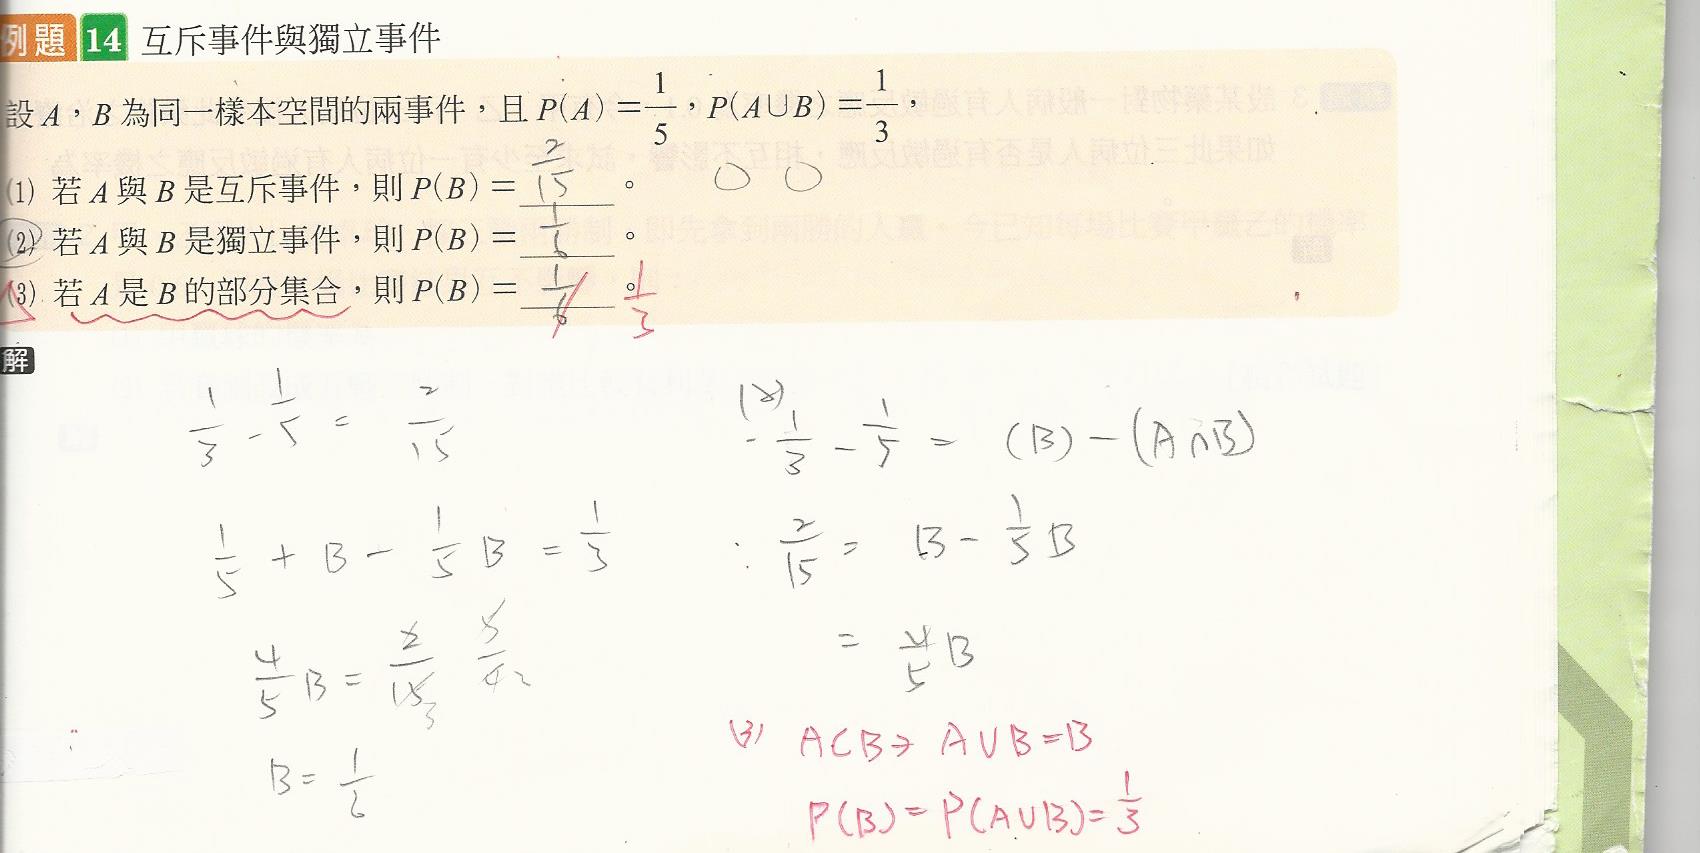 例題 14 互斥事件與獨立事件
設 A,B 為同一樣本空間的兩事件,且 P(A)=1/5,P(A∪B)=1/3,
(1) 若 A 與 B 是互斥事件,則 P(B)= 2/15 。
(2) 若 A 與 B 是獨立事件,則 P(B)= 1/6 。
(3) 若 A 是 B 的部分集合,則 P(B)= 1/6 。 1/3
解
1/3 - 1/5 = 2/15
1/5 + B - 1/5 B = 1/3
4/5 B = 2/15 5/4
B = 1/6
(2)
1/3 - 1/5 = (B) - (A∩B)
2/15 = B - 1/5 B
= 4/5 B
(3) A⊂B → A∪B=B
P(B) = P(A∪B) = 1/3